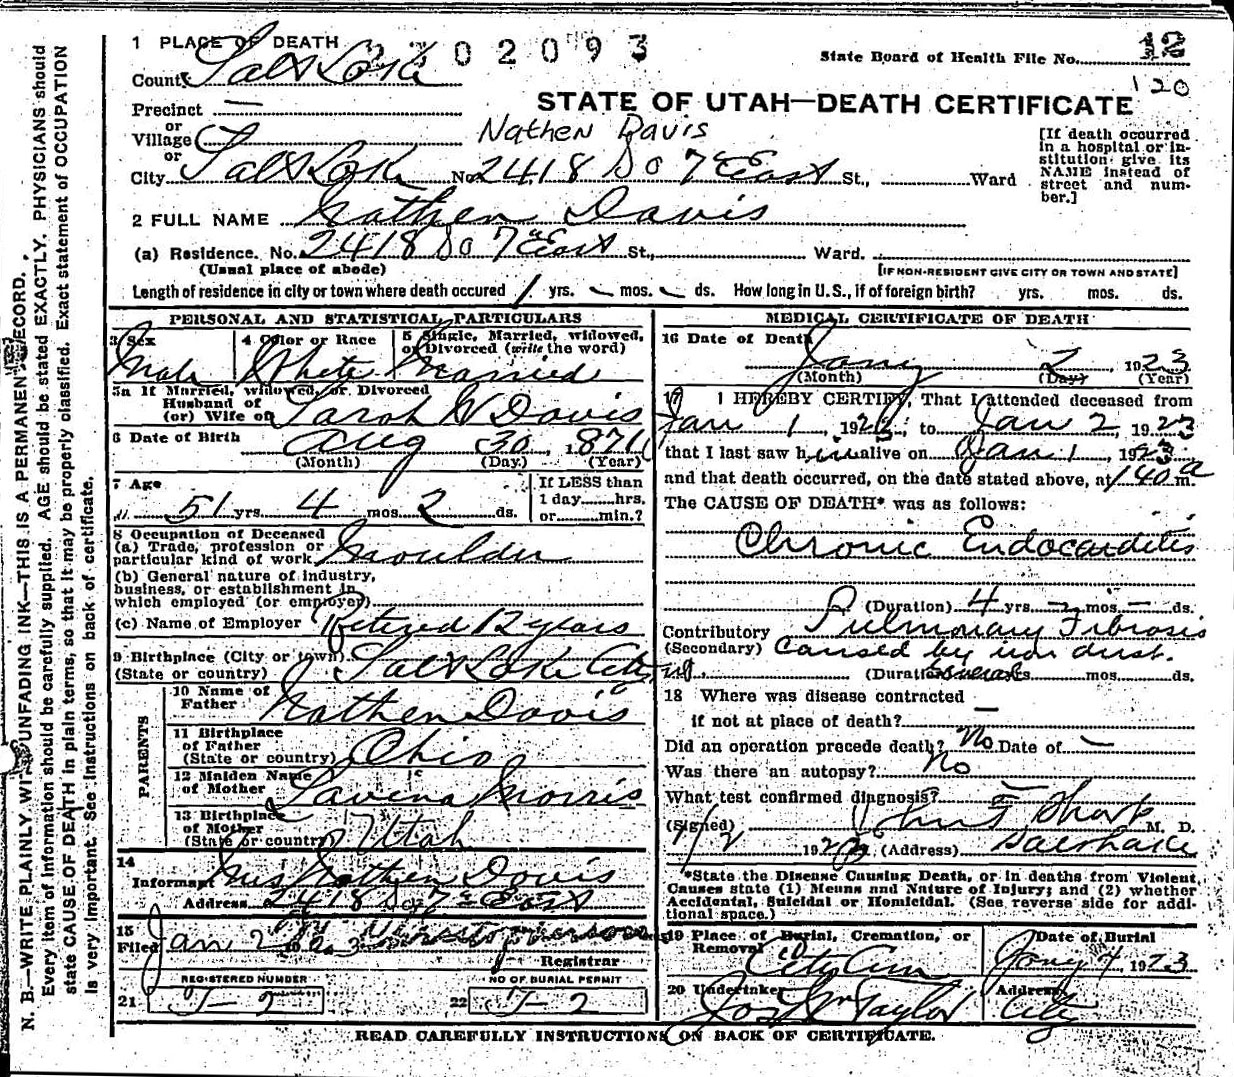 2302093
State Board of Health File No. 12
120
1 PLACE OF DEATH
County Salt Lake
STATE OF UTAH—DEATH CERTIFICATE
Precinct —
or
Village
Nathen Davis
or
City Salt Lake No. 2418 So 7th East St., Ward
[If death occurred
in a hospital or in-
stitution give its
NAME instead of
street and num-
ber.]
2 FULL NAME Nathen Davis
(a) Residence. No. 2418 So 7th East St., Ward.
(Usual place of abode)
[IF NON-RESIDENT GIVE CITY OR TOWN AND STATE]
Length of residence in city or town where death occured 1 yrs. – mos. – ds. How long in U.S., if of foreign birth? yrs. mos. ds.
PERSONAL AND STATISTICAL PARTICULARS
3 Sex
Male
4 Color or Race
White
5 Single, Married, widowed,
or Divorced (write the word)
Married
5a If Married, widowed, or Divorced
Husband of
(or) Wife of Sarah W Davis
6 Date of Birth Aug 30, 1871
(Month) (Day.) (Year)
7 Age
51 yrs. 4 mos. 2 ds.
If LESS than
1 day hrs.
or min.?
8 Occupation of Deceased
(a) Trade, profession or
particular kind of work Moulder
(b) General nature of industry,
business, or establishment in
which employed (or employer)
(c) Name of Employer Retired 12 years
9 Birthplace (City or town) Salt Lake City
(State or country) Ut.
PARENTS
10 Name of
Father Nathen Davis
11 Birthplace
of Father
(State or country) Ohio
12 Maiden Name
of Mother Lavena Morris
13 Birthplace
of Mother
(State or country) Utah
14
Informant Mrs Nathen Davis
Address 2418 So 7th East
15
Filed Jan 2 1923
Registrar
REGISTERED NUMBER
21 J-2
NO OF BURIAL PERMIT
22 J-2
MEDICAL CERTIFICATE OF DEATH
16 Date of Death
Jany 2, 1923
(Month) (Day) (Year)
17 I HEREBY CERTIFY, That I attended deceased from
Jan 1, 1923, to Jan 2, 1923
that I last saw him alive on Jan 1, 1923
and that death occurred, on the date stated above, at 1 40 a m.
The CAUSE OF DEATH* was as follows:
Chronic Endocarditis
(Duration) 4 yrs. – mos. – ds.
Contributory Pulmonary Fibrosis
(Secondary) caused by iron dust.
(Duration) several yrs. mos. ds.
18 Where was disease contracted
if not at place of death? —
Did an operation precede death? No Date of –
Was there an autopsy? No
What test confirmed diagnosis? –
(Signed) M. D.
1/2 1923, (Address) Salt Lake
*State the Disease Causing Death, or in deaths from Violent
Causes state (1) Means and Nature of Injury; and (2) whether
Accidental, Suicidal or Homicidal. (See reverse side for addi-
tional space.)
19 Place of Burial, Cremation, or
Removal City Cem
Date of Burial
Jany 4, 1923
20 Undertaker Jos Wm Taylor
Address
City
READ CAREFULLY INSTRUCTIONS ON BACK OF CERTIFICATE.
N. B.—WRITE PLAINLY WITH UNFADING INK—THIS IS A PERMANENT RECORD.
Every item of information should be carefully supplied. AGE should be stated EXACTLY. PHYSICIANS should
state CAUSE OF DEATH in plain terms, so that it may be properly classified. Exact statement of OCCUPATION
is very important. See instructions on back of certificate.